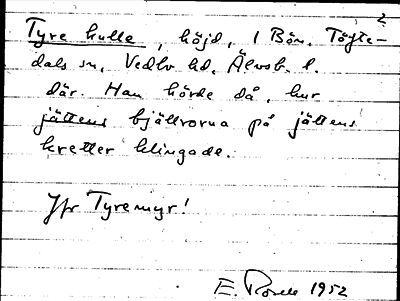 2
Tyre kulle, höjd, 1 Bön. Töfte-
dals sn, Vedbo hd, Älvsb. l.
där. Man hörde då, hur
jättens bjällrorna på jättens
kretter klingade.
Jfr Tyremyr!
E. 1952